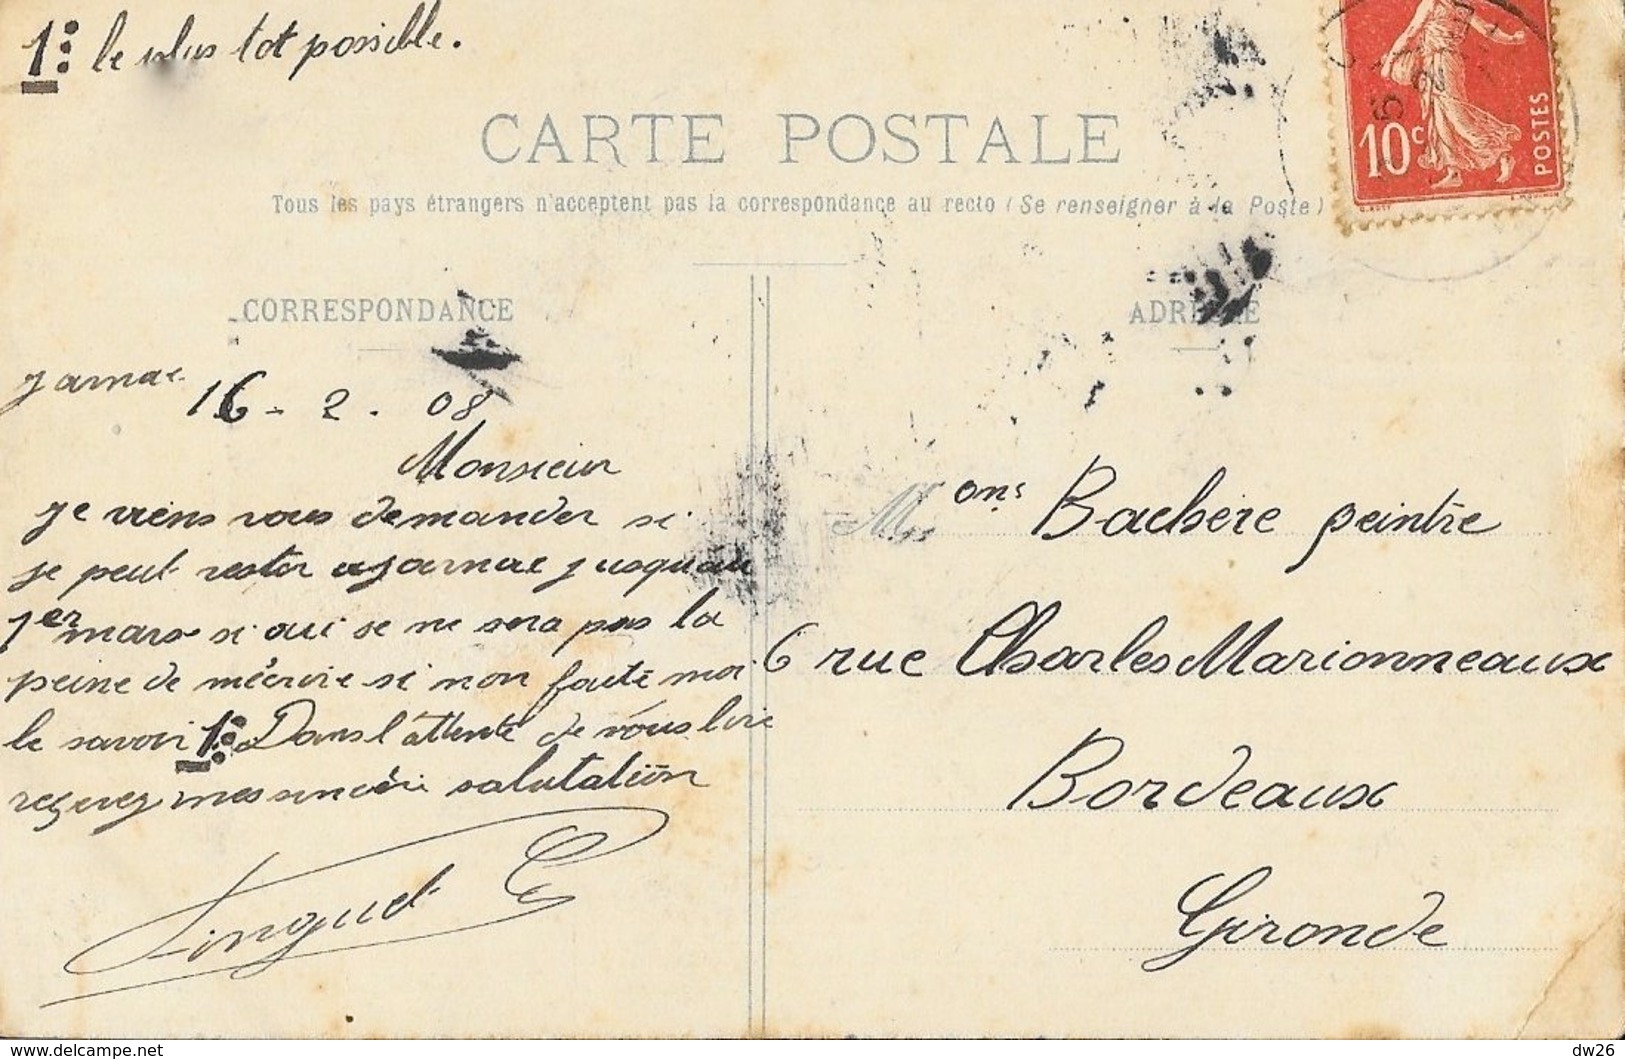 1: le plus tot possible.
CARTE POSTALE
Tous les pays étrangers n'acceptent pas la correspondance au recto (Se renseigner à la Poste)
10c POSTES
CORRESPONDANCE
jarnac 16 - 2 . 08
Monsieur
je viens vous demander si
je peut rester a jarnac jusquau
1er mars si oui se ne sera pas la
peine de mécrire si non faite moi
le savoir 1: Dans l'attente de vous lire
recevez mes sincère salutation
ADRESSE
Mons Bachère peintre
6 rue Charles Marionneaux
Bordeaux
Gironde
www.delcampe.net
dw26